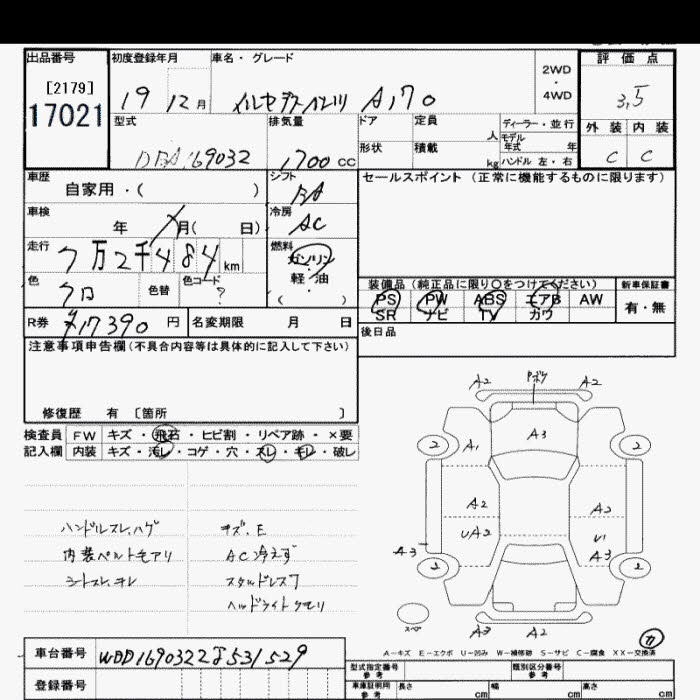 出品番号
[2179]
17021
初度登録年月
19 12 月
車名・グレード
メルセデスベンツ A170
2WD
・
4WD
評価点
3.5
外装 内装
C C
型式
DBA169032
排気量
1700 cc
ドア
定員
人
ディーラー・並行
モデル
年式 年
形状
積載
kg
ハンドル 左・右
車歴
自家用・( )
シフト
FA
セールスポイント(正常に機能するものに限ります)
車検
年 月( 日)
冷房
AC
走行
7万2千484km
燃料
ガソリン
軽・油
( )
色
クロ
色替
色コード
?
装備品(純正品に限り〇をつけてください)
新車保証書
PS PW ABS エアB AW
SR ナビ TV カワ
有・無
R券
¥17390 円
名変期限 月 日
後日品
注意事項申告欄(不具合内容等は具体的に記入して下さい)
修復歴 有 〔箇所 〕
検査員
記入欄
FW キズ・飛石・ヒビ割・リペア跡・×要
内装 キズ・汚レ・コゲ・穴・スレ・キレ・破レ
ハンドルスレ、ハゲ
内装ベルトモアリ
シートスレ、キレ
キズ、E
AC冷えず
スタッドレス7
ヘッドライトクモリ
A2 A2
A3
2 2
A1
A2 A2
UA2 U1
A3 A3
2 2
スペア
A3 A2
A-キズ E-エクボ U-凹み W-補修跡 S-サビ C-腐食 XX-交換済
車台番号
WDD1690322J531529
登録番号
型式指定番号
参考
類別区分番号
参考
車庫証明用
参考
長さ cm
幅 cm
高さ cm